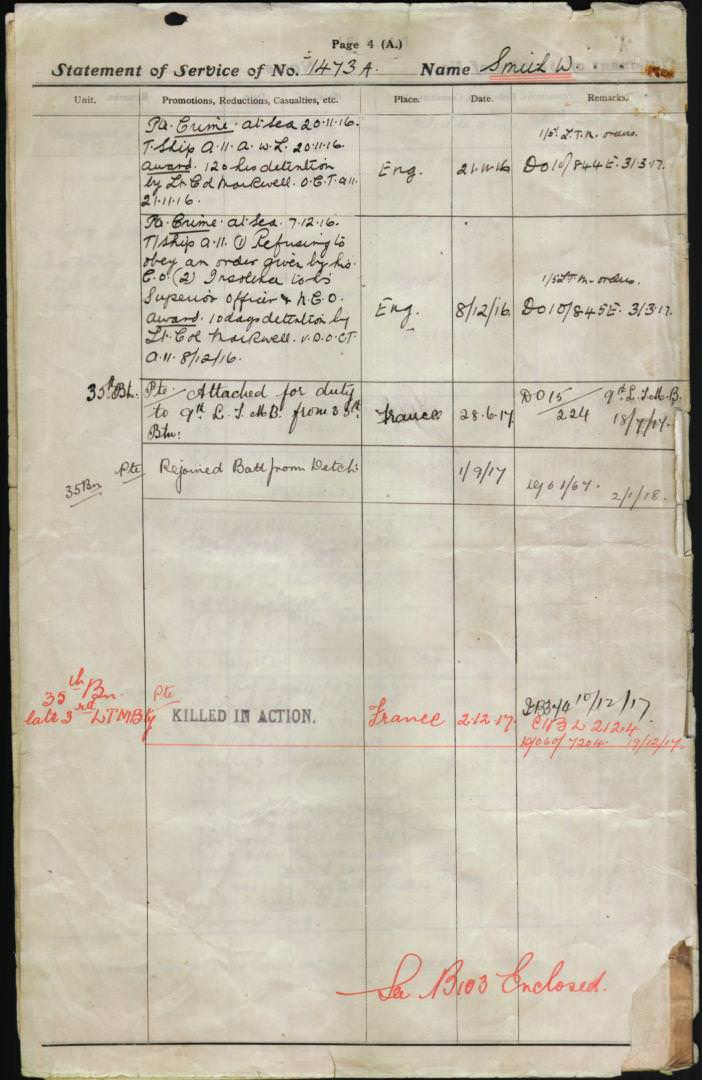 Page 4 (A.)
Statement of Service of No. 1473 A. Name Smith W.
Unit. Promotions, Reductions, Casualties, etc. Place. Date. Remarks.
Pte. Crime. at Sea 20.11.16.
T. Ship A.11. A.W.L. 20.11.16.
Award. 120 hrs detention
by Lt Col Markwell. O.C.T. A11
21.11.16.
Eng. 21.11.16
L.T.M. orders.
DO 10/844E. 31.3.17.
Pte. Crime. at Sea. 7.12.16.
T/Ship A.11. (1) Refusing to
obey an order given by his
C.O. (2) Insolence to his
Superior Officer & N.C.O.
Award. 10 days detention by
Lt. Col Markwell. O.C.T.
A.11. 8/12/16.
Eng. 8/12/16
L.T.M. orders.
DO 10/845E. 31.3.17.
35th Bn. Pte. Attached for duty
to 9th L.T.M.B. from 35th
Btn.
France 28.6.17
DO 15/224 9th L.T.M.B.
18/7/17.
35 Bn Pte Rejoined Batt from Detch: 1/9/17
2/1/18.
35th Bn.
late 3rd LTMBty
Pte
KILLED IN ACTION. France 2.12.17.
10/12/17.
2124
7204 19/12/17.
See B103 Enclosed.